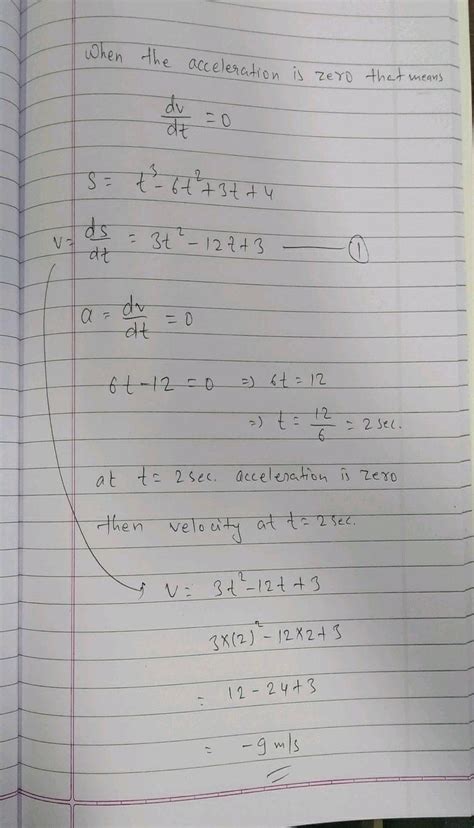 When the acceleration is zero that means
dv/dt = 0
S = t³ - 6t² + 3t + 4
v = ds/dt = 3t² - 12t + 3 ——— ①
a = dv/dt = 0
6t - 12 = 0 ⇒ 6t = 12
⇒ t = 12/6 = 2 sec.
at t = 2 sec. acceleration is zero
then velocity at t = 2 sec.
V = 3t² - 12t + 3
3×(2)² - 12×2+3
= 12 - 24 + 3
= -9 m/s